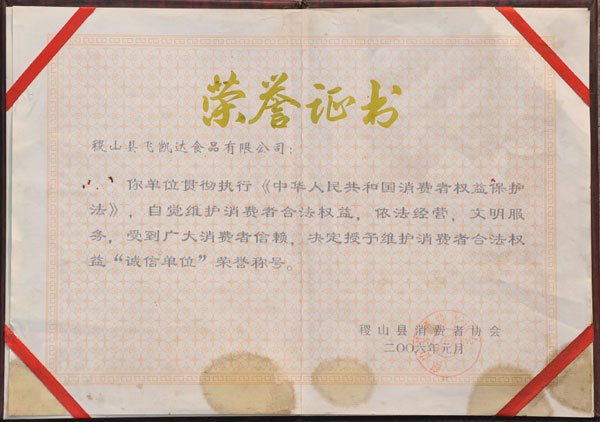 荣誉证书
稷山县飞凯达食品有限公司：
你单位贯彻执行《中华人民共和国消费者权益保护
法》，自觉维护消费者合法权益，依法经营，文明服
务，受到广大消费者信赖，决定授予维护消费者合法权
益“诚信单位”荣誉称号。
稷山县消费者协会
二〇〇六年元月